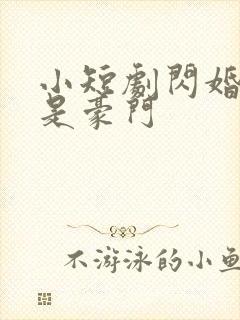 小短劇閃婚
是豪門
不游泳的小魚